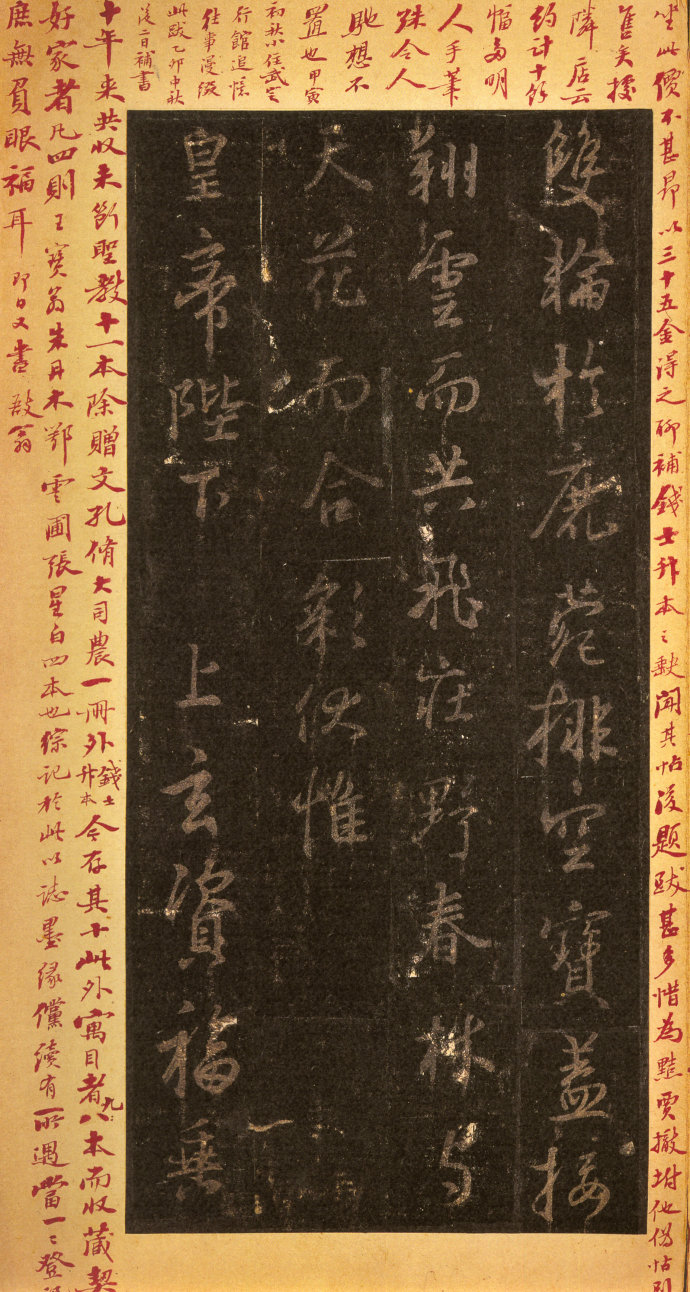 坐此價不甚昂以三十五金得之聊補錢士升本之缺聞其帖後題跋甚多惜為黠賈撤坿他僞帖別
售矣據
隣店云
約計十餘
幅多明
人手筆
殊令人
馳想不
置也甲寅
初秋小住武定
行館追憶
往事漫綴
此跋乙卯中秋
後二日補書
雙輪於鹿菀排空寶蓋接
翔雲而共飛莊野春林与
天花而合彩伏惟
皇帝陛下 上玄資福垂
十年來共收未斷聖教十一本除贈文孔脩大司農一冊外錢士升本今存其十此外寓目者九本而收藏契
好家者凡四則王寶翁朱丹木鄂雲圃張星白四本也綜記於此以誌墨緣儻續有所遇當一一登
庶無負眼福耳即日又書敔翁